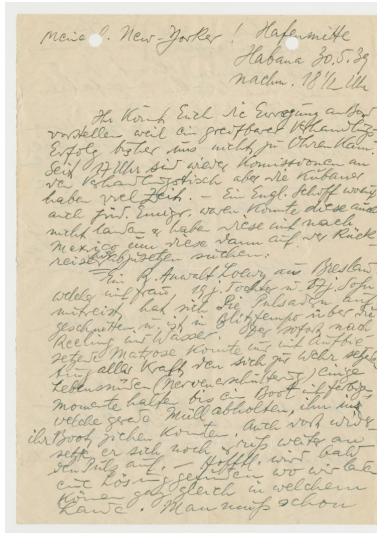 Meine l. New-Yorker! Hafenmitte
Habana 30.5.39
nachm. 18 1/2 Uhr
Ihr könnt Euch die Erregung an Bord
vorstellen weil ein greifbarer Verhandlungs
Erfolg bisher uns nicht zu Ohren kam.
Seit 17 Uhr sind wieder Komissionen an
den Verhandlungstisch aber die Kubaner
haben viel Zeit. - Ein Engl. Schiff
auch jüd. Emigr. waren konnte diese auch
nicht landen u. haben diese mit nach
Mexico um diese dann auf der Rück-
reise abzusetzen suchen.
Ein R. Anwalt Loewy aus Breslau
welcher mit Frau, 19 j. Tochter u. 17 j. Sohn
mitreist, hat sich die Pulsadern auf
geschnitten u. ist in Blitztempo über die
Reeling ins Wasser. sofort nach
setzende Matrose konnte ihn mit Aufbie-
tung aller Kraft den sich zu Wehr setzenden
Lebensmüden (Nervenerschütterung) einige
Momente halten bis ein Boot
welche gerade Müll abholten, ihn in
ihr Boot ziehen konnten. Auch dort
setzte er sich noch u. riss weiter am
den Puls auf. - Hofftl. wird bald
eine Lösung gefunden wo wir landen
können ganz gleich in welchem
Lande. Man muss schon